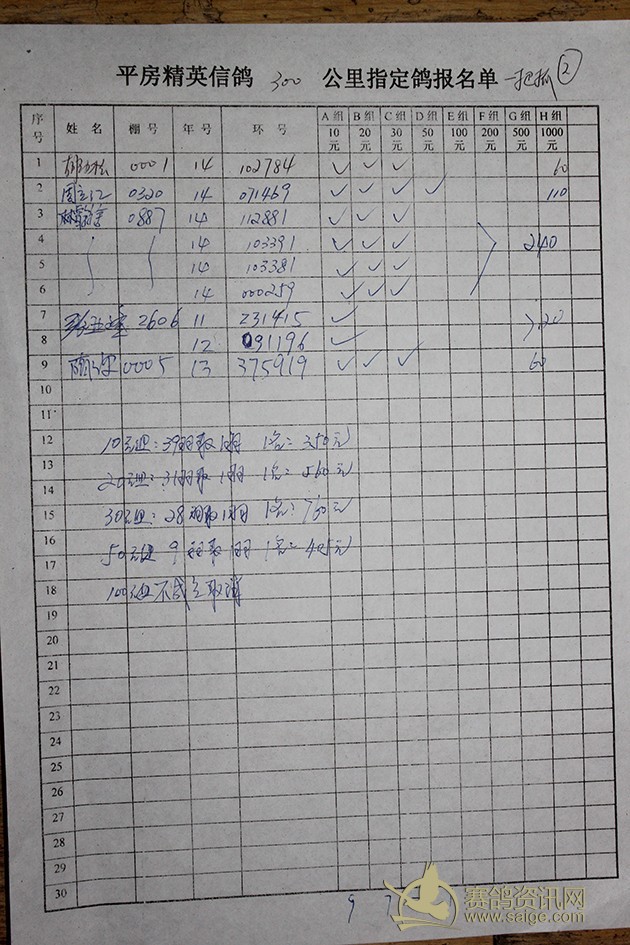 平房精英信鸽 300 公里指定鸽报名单 一把抓 ②
序号 姓名 棚号 年号 环号 A组 10元 B组 20元 C组 30元 D组 50元 E组 100元 F组 200元 G组 500元 H组 1000元
1 0001 14 102784 ✓ ✓ ✓ 60
2 周立江 0320 14 071469 ✓ ✓ ✓ ✓ 110
3 0887 14 112881 ✓ ✓ ✓
4 14 103391 ✓ ✓ ✓ 240
5 14 103381 ✓ ✓ ✓
6 14 000259 ✓ ✓ ✓
7 2606 11 231415 ✓ 20
8 12 091196 ✓
9 0005 13 375919 ✓ ✓ ✓ 60
10
11
12 10元组: 39羽取1羽 1名: 350元
13
14 20元组: 31羽取1羽 1名: 560元
15 30元组: 28羽取1羽 1名: 760元
16
17 50元组 9羽取1羽 1名: 405元
18 100元组不成立取消
19
20
21
22
23
24
25
26
27
28
29
30
9 7
赛鸽资讯网
www.saige.com